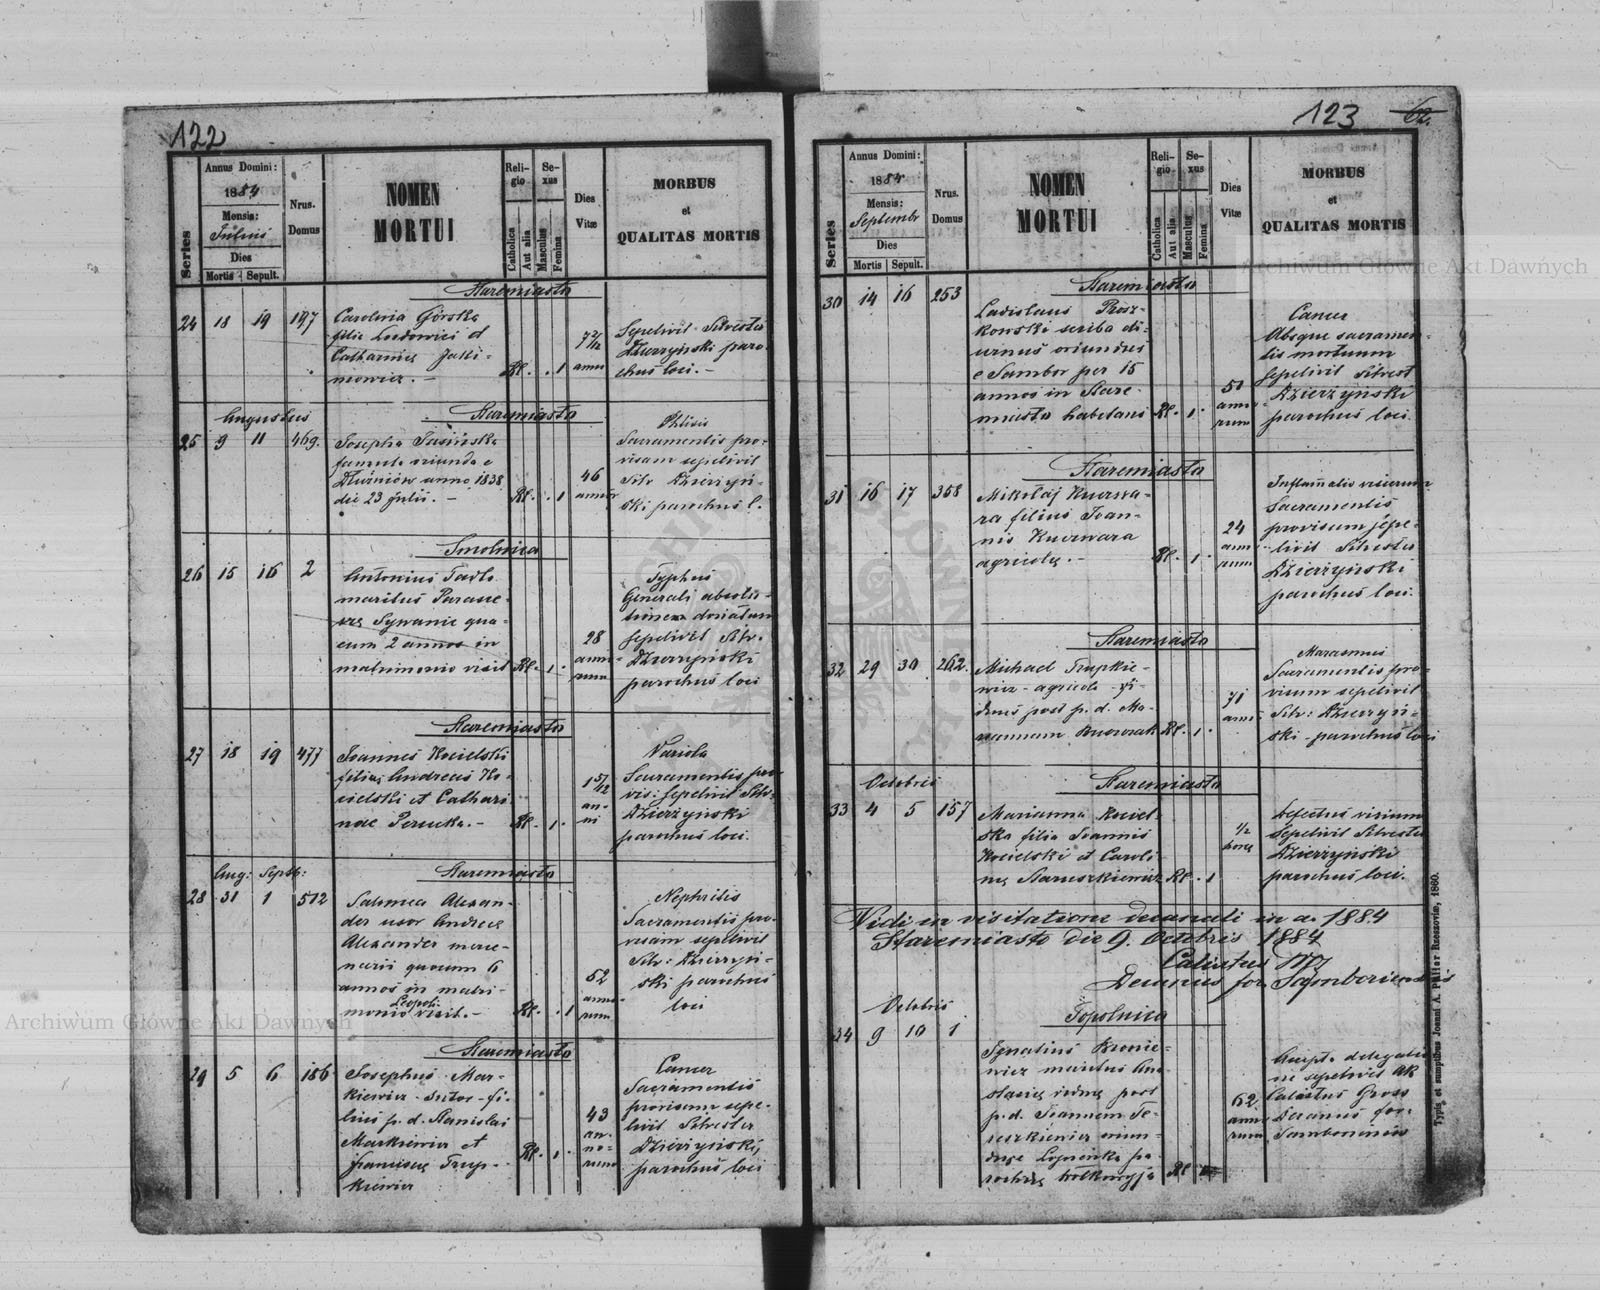 122
Annus Domini:
1884
Mensis:
Julius
Dies
Mortis Sepult.
Series
Nrus.
Domus
NOMEN
MORTUI
Reli-
gio
Catholica
Aut alia
Se-
xus
Masculus
Femina
Dies
Vitæ
MORBUS
et
QUALITAS MORTIS
Staremiasto
24 18 19 197
Carolina Górska
filia Ludovici et
Catharinæ Jaki-
mowicz. -
Rl. 1
7 2/12
anni
Sepelivit Silvester
Dzierzyński paro-
chus loci. -
Augustus
Staremiasto
25 9 11 469.
Josepha Jasińska
famula oriunda e
anno 1838
die 23 Julii. -
Rl. 1
46
annor
Phtisis
Sacramentis pro-
visam sepelivit
Silv Dzierzyń-
ski parochus l.
Smolnica
26 15 16 2
Antonius
maritus Parasce-
vae qua-
cum 2 annos in
matrimonio vixit
Rl. 1
28
anno-
rum
Typhus
Generali absolu-
tione donatum
sepelivit Silv.
Dzierzyński
parochus loci
Staremiasto
27 18 19 477
Joannes Kocielski
filius Andreas Ko-
cielski et Cathari
nae
Rl. 1
1 5/12
an-
ni
Variola
Sacramentis pro-
vis: sepelivit Silv.
Dzierzyński
parochus loci.
Aug: Septb:
Staremiasto
28 31 1 512
Salomea Alexan-
der uxor Andreæ
Alexander merce-
narii quocum 6
annos in matri-
Leopoli
monio vixit. -
Rl. 1
52
anno-
rum
Nephritis
Sacramentis pro-
visam sepelivit
Silv: Dzierzyń-
ski parochus
loci
Staremiasto
29 5 6 186
Josephus Mar-
kiewicz - sutor - fi-
lius p. d. Stanislai
Markiewicz et
Franciscæ Trup-
kiewicz
Rl. 1
43
an-
no-
rum
Cancer
Sacramentis
provisum sepe-
livit Silvester
Dzierzyński
parochus loci
123 62.
Annus Domini:
1884
Mensis:
Septembr
Dies
Mortis Sepult.
Series
Nrus.
Domus
NOMEN
MORTUI
Reli-
gio
Catholica
Aut alia
Se-
xus
Masculus
Femina
Dies
Vitæ
MORBUS
et
QUALITAS MORTIS
Staremiasto
30 14 16 253
Ladislaus Prosz-
kowski scriba di-
urnus oriundus
e Sambor per 15
annos in Stare-
miasto habitans
Rl. 1
50
anno-
rum
Cancer
Absque sacramen-
tis mortuum
sepelivit Silvest
Dzierzyński
parochus loci.
Staremiasto
31 16 17 358
Mikołaj Kurwa-
ra filius Joan-
nis Kurwara
agricolæ. -
Rl. 1
24
anno
rum
Inflamatio viscerum
Sacramentis
provisum sepe-
livit Silvester
Dzierzyński
parochus loci.
Staremiasto
32 29 30 262.
Michael Trupkie-
wicz - agricola - vi-
duus post p. d. Ma-
riannam
Rl. 1
71
anni
Marasmus
Sacramentis pro-
visum sepelivit
Silv: Dzierzyń-
ski - parochus loci
Octobris
Staremiasto
33 4 5 157
Marianna Kociel
ska filia Joannis
Kocielski et Caroli-
næ Staruszkiewicz
Rl. 1
1/2
horæ
Defectus virium
Sepelivit Silvester
Dzierzyński
parochus loci.
Vidi in visitatione decanali in a. 1884
Staremiasto die 9. Octobris 1884
Calixtus
Decanus for. Samboriensis
Octobris
Topolnica
34 9 10 1
Ignatius Kronie-
wicz maritus Ana
stasiæ viduæ post
p. d. Joannem Se-
neszkiewicz oriun-
dus
Rl.
62
anno
rum
Accept. delegatio
ne sepelivit
Calixtus Gross
Decanus for.
Samboriensis
Typis et sumptibus Joanni A. Pellar Rzeszoviæ, 1860.
Archiwum Główne Akt Dawnych
Archiwum Główne Akt Dawnych